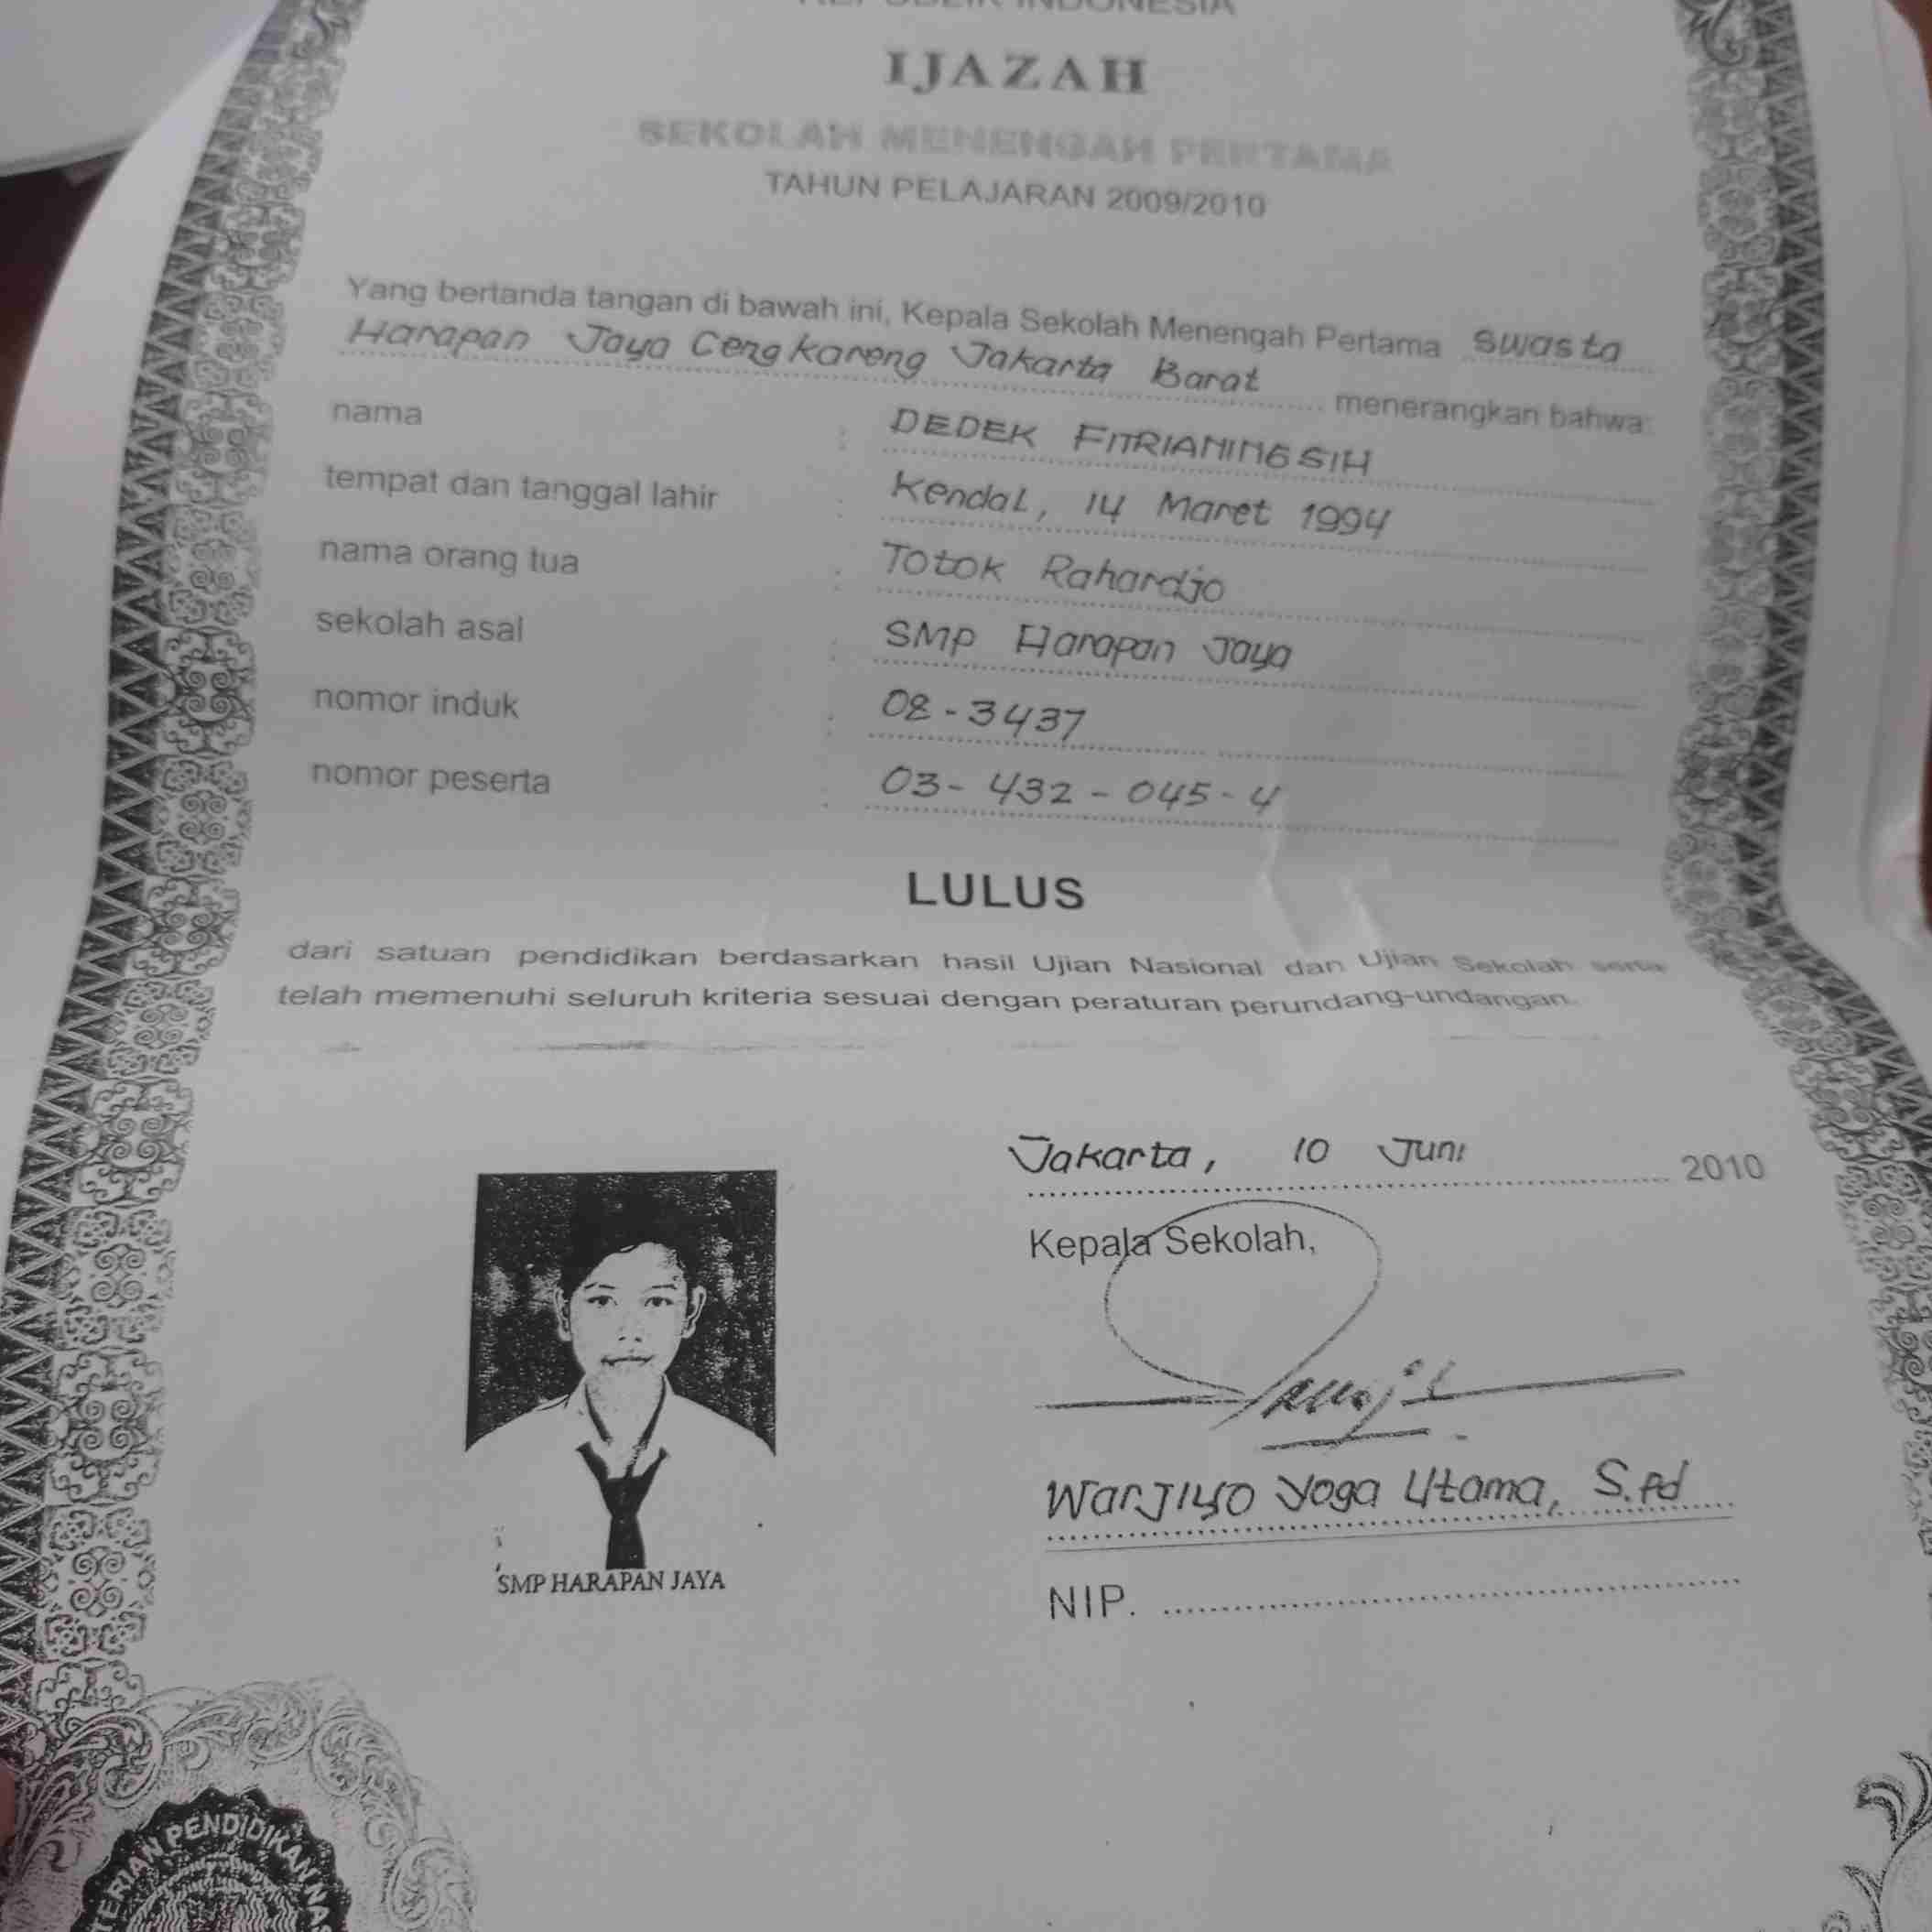 REPUBLIK INDONESIA
IJAZAH
SEKOLAH MENENGAH PERTAMA
TAHUN PELAJARAN 2009/2010
Yang bertanda tangan di bawah ini, Kepala Sekolah Menengah Pertama Swasta
Harapan Jaya Cengkareng Jakarta Barat menerangkan bahwa:
nama : DEDEK FITRIANINGSIH
tempat dan tanggal lahir : Kendal, 14 Maret 1994
nama orang tua : Totok Rahardjo
sekolah asal : SMP Harapan Jaya
nomor induk : 08-3437
nomor peserta : 03-432-045-4
LULUS
dari satuan pendidikan berdasarkan hasil Ujian Nasional dan Ujian Sekolah serta
telah memenuhi seluruh kriteria sesuai dengan peraturan perundang-undangan.
Jakarta, 10 Juni 2010
Kepala Sekolah,
Warjiyo Yoga Utama, S.Pd
NIP.
SMP HARAPAN JAYA
TERIAN PENDIDIKAN NAS